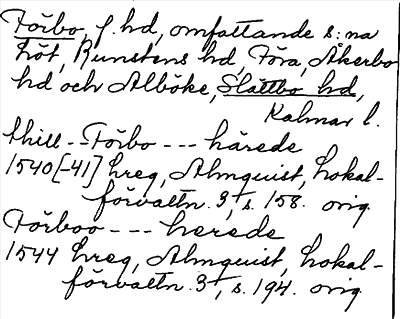 Förbo, f. hd, omfattande s:na
Löt, Runstens hd, Föra, Åkerbo
hd och Alböke, Slättbo hd,
Kalmar l.
thill -- Förbo --- härede
1540[-41] hreg, Almquist, Lokal-
förvaltn. 3, s. 158. orig.
Förboo --- herede
1544 hreg, Almquist, Lokal-
förvaltn. 3, s. 194. orig.